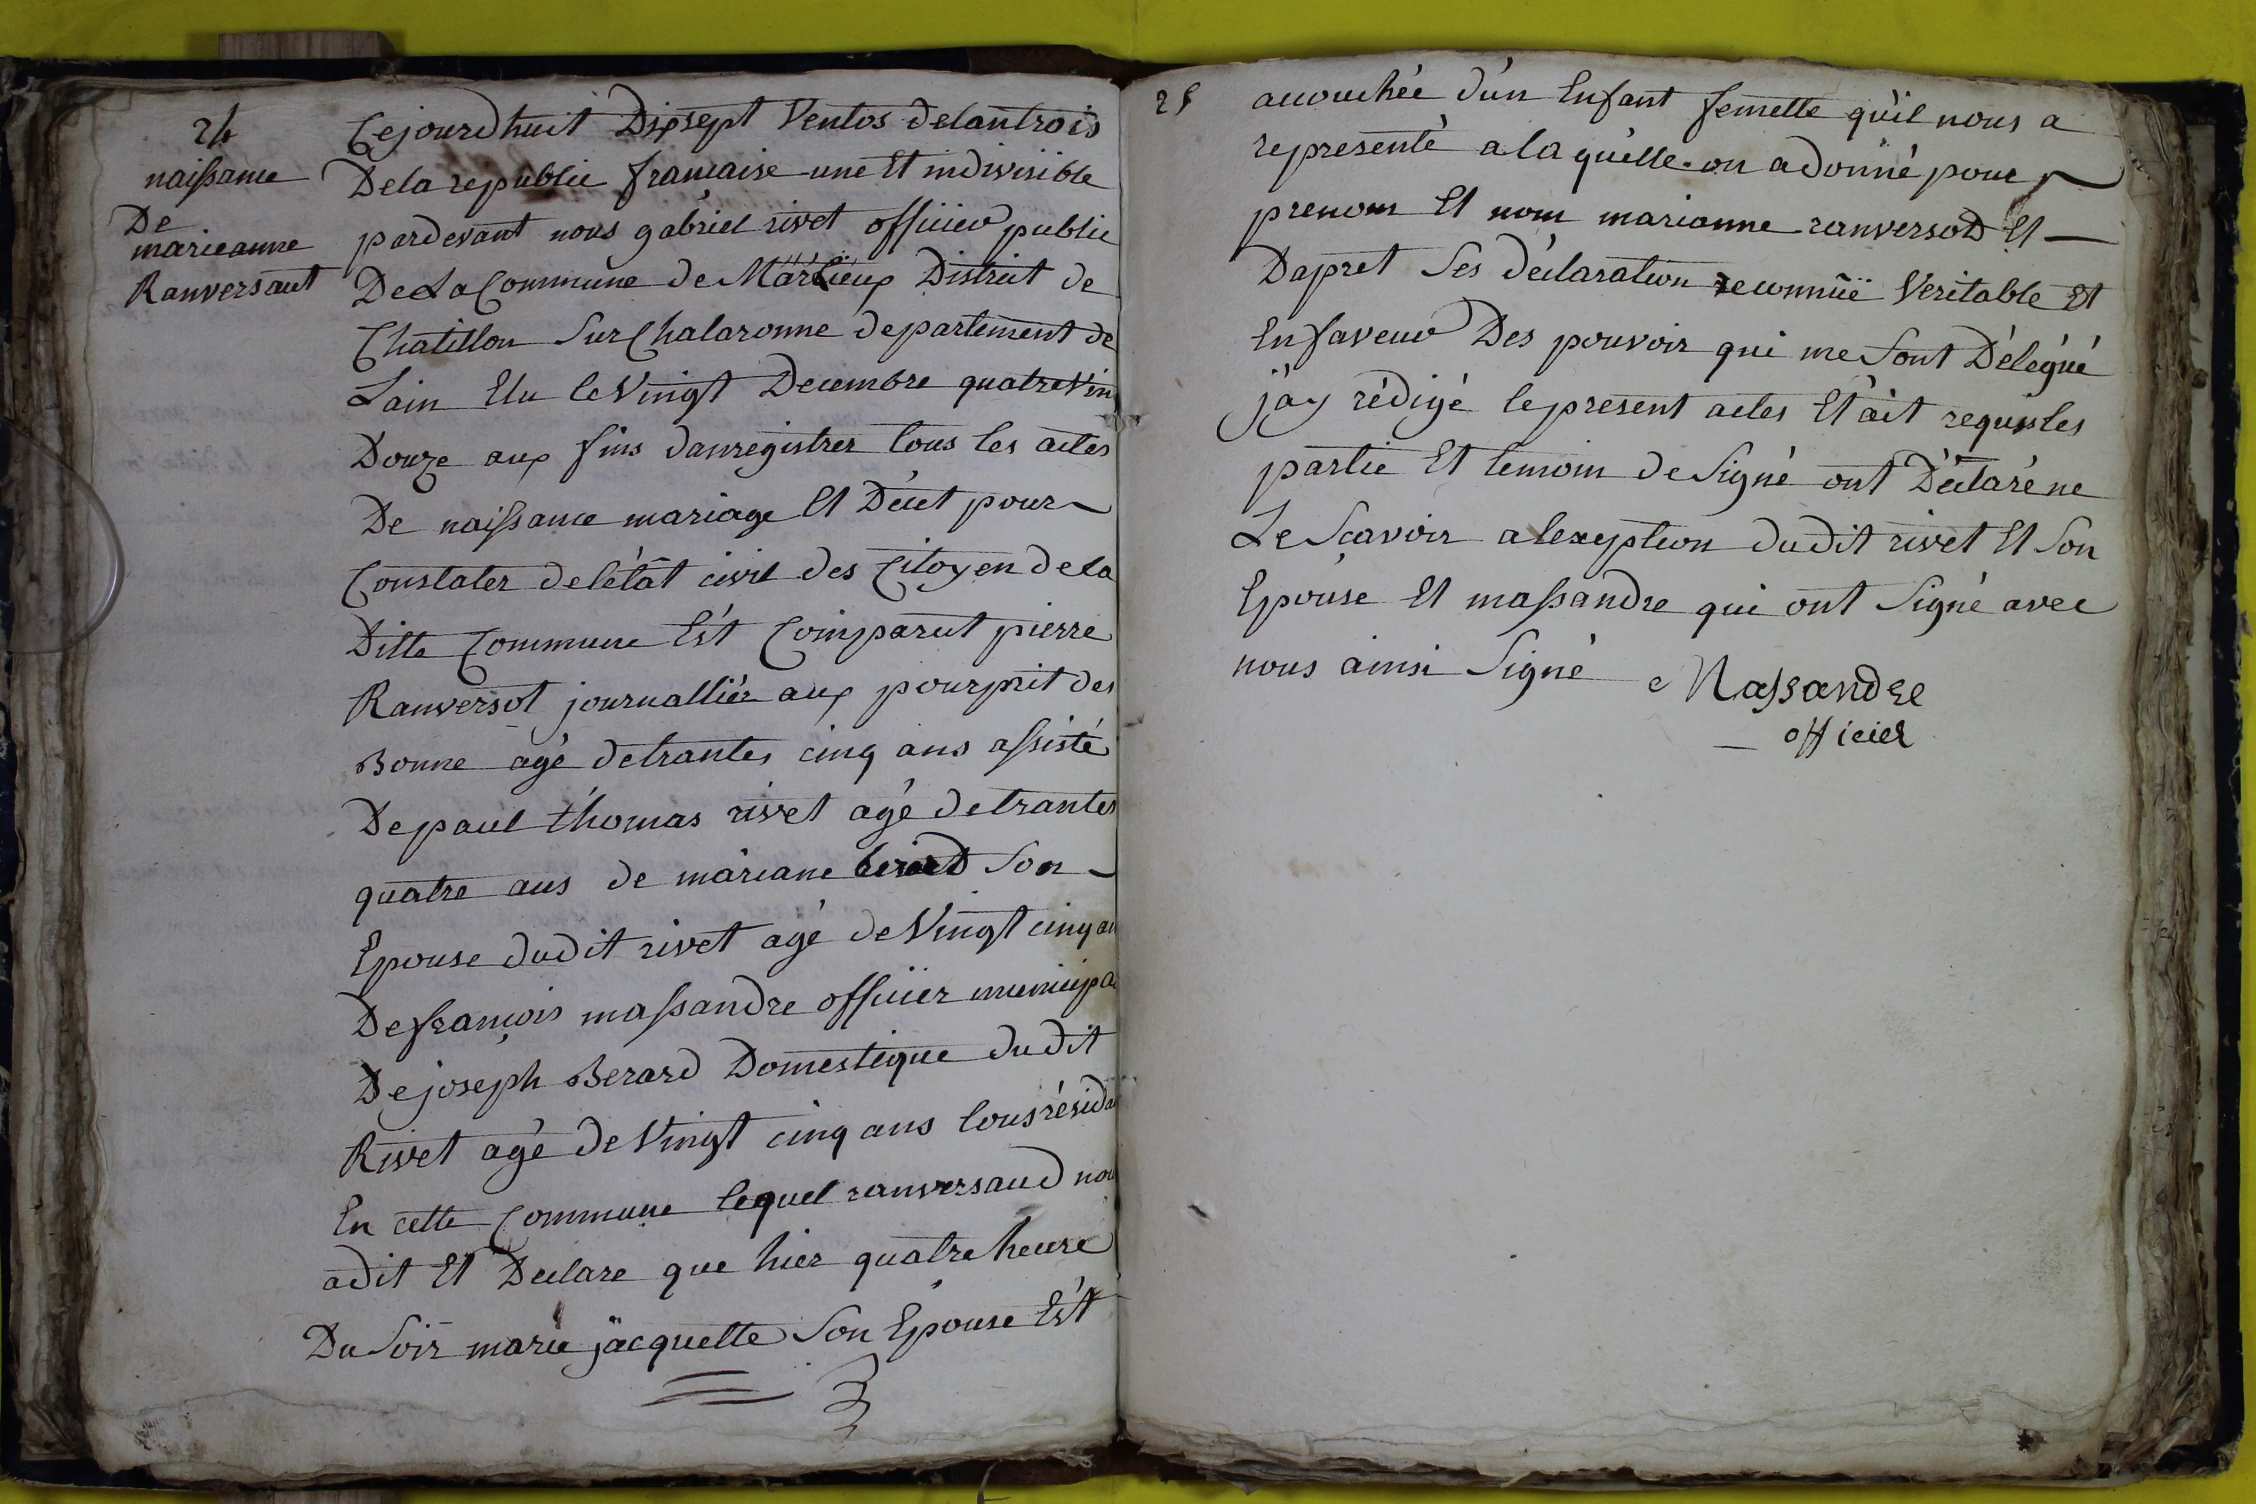 24
naissance
De
marieanne
Ranversaut
Cejourdhuit Dixsept Ventos delantrois
Dela republic française une Et indivisible
pardevant nous gabriel rivet officier public
De La Commune de Marlieux District de
Chatillon Sur Chalaronne departement de
Lain Elu le Vingt Decembre quatre Vin
Douze aux fins danregistrer tous les actes
De naissance mariage Et Décet pour
Constater de létât civil des Citoyen de la
Ditte Commune Ést Comparut pierre
Ranversot journalliér aux pourprit des
Bonne agé de trantes cinq ans assisté
De paul thomas rivet agé de trantes
quatre ans de mariane Son
Epouse dudit rivet agé de Vingt cinq an
De françois massandre officier municipa
De joseph Berard Domestique dudit
Rivet agé de Vingt cinq ans tous résida
En cette Commune lequel ranversaud nou
adit Et Declare que hier quatre heure
Du Soir marie jacquette Son Epouse Ést
25
accouchée d'un Enfant femelle qu'il nous a
representé a la quélle on a donné pour
prenom Et nom marianne ranversod Et
Dapret Ses déclaration reconnüe Veritable Et
En faveur Des pouvoir qui me Sont Délégué
j'ay rédigé le present actes Et ait requis les
partie Et temoin de Signé ont Déclaré ne
Le Sçavoir a lexception dudit rivet Et Son
Epouse Et massandre qui ont Signé avec
nous ainsi Signé Massandre
officier